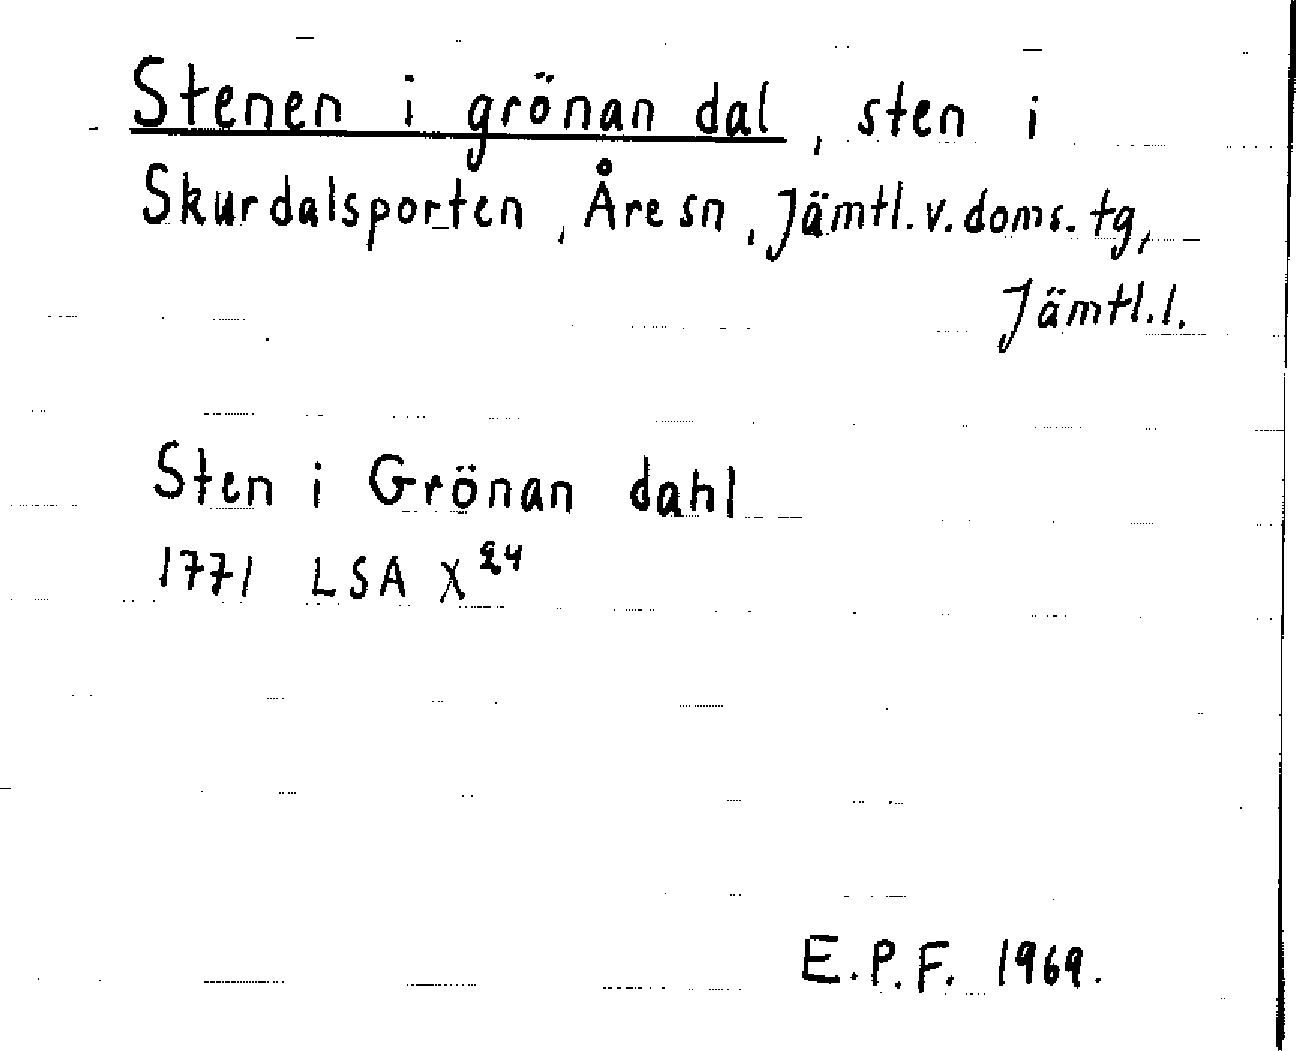 Stenen i grönan dal, sten i
Skurdalsporten, Åre sn, Jämtl. v. doms. tg,
Jämtl. l.
Sten i Grönan dahl
1771 LSA X²⁴
E.P.F. 1969.